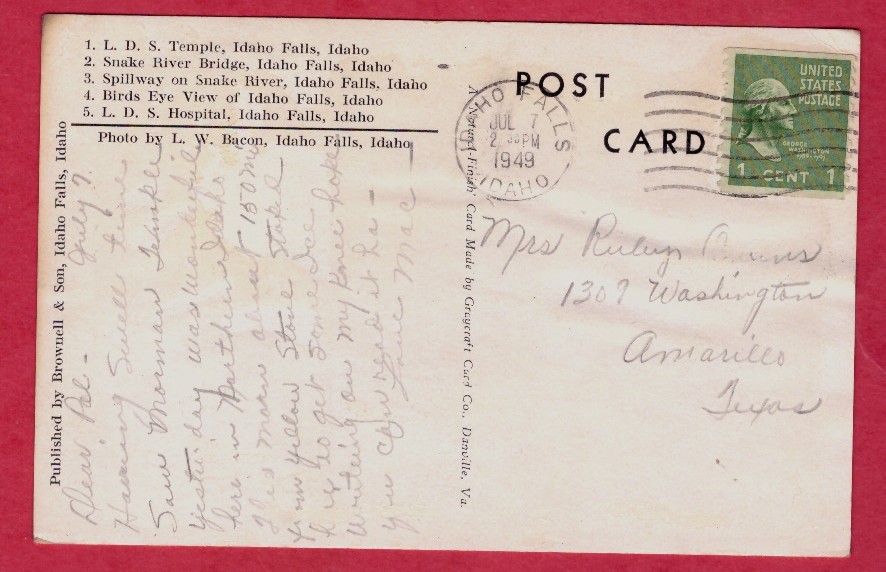 1. L. D. S. Temple, Idaho Falls, Idaho
2. Snake River Bridge, Idaho Falls, Idaho
3. Spillway on Snake River, Idaho Falls, Idaho
4. Birds Eye View of Idaho Falls, Idaho
5. L. D. S. Hospital, Idaho Falls, Idaho
Photo by L. W. Bacon, Idaho Falls, Idaho
Published by Brownell & Son, Idaho Falls, Idaho
July 7
Dear Pal -
Having Swell time
Saw Morman Temple
yester day was wonderful
here in Northern Idaho
this morn about 150 mi
from yellow Stone
to get some Ice
writeing on my knee hope
you can read it ha -
Love Mac -
A Natural-Finish Card Made by Graycraft Card Co., Danville, Va.
POST
CARD
IDAHO FALLS
JUL 7
2 PM
1949
IDAHO
UNITED
STATES
POSTAGE
GEORGE
WASHINGTON
1789-1797
1 CENT 1
Mrs Ruby
1309 Washington
Amarillo
Texas